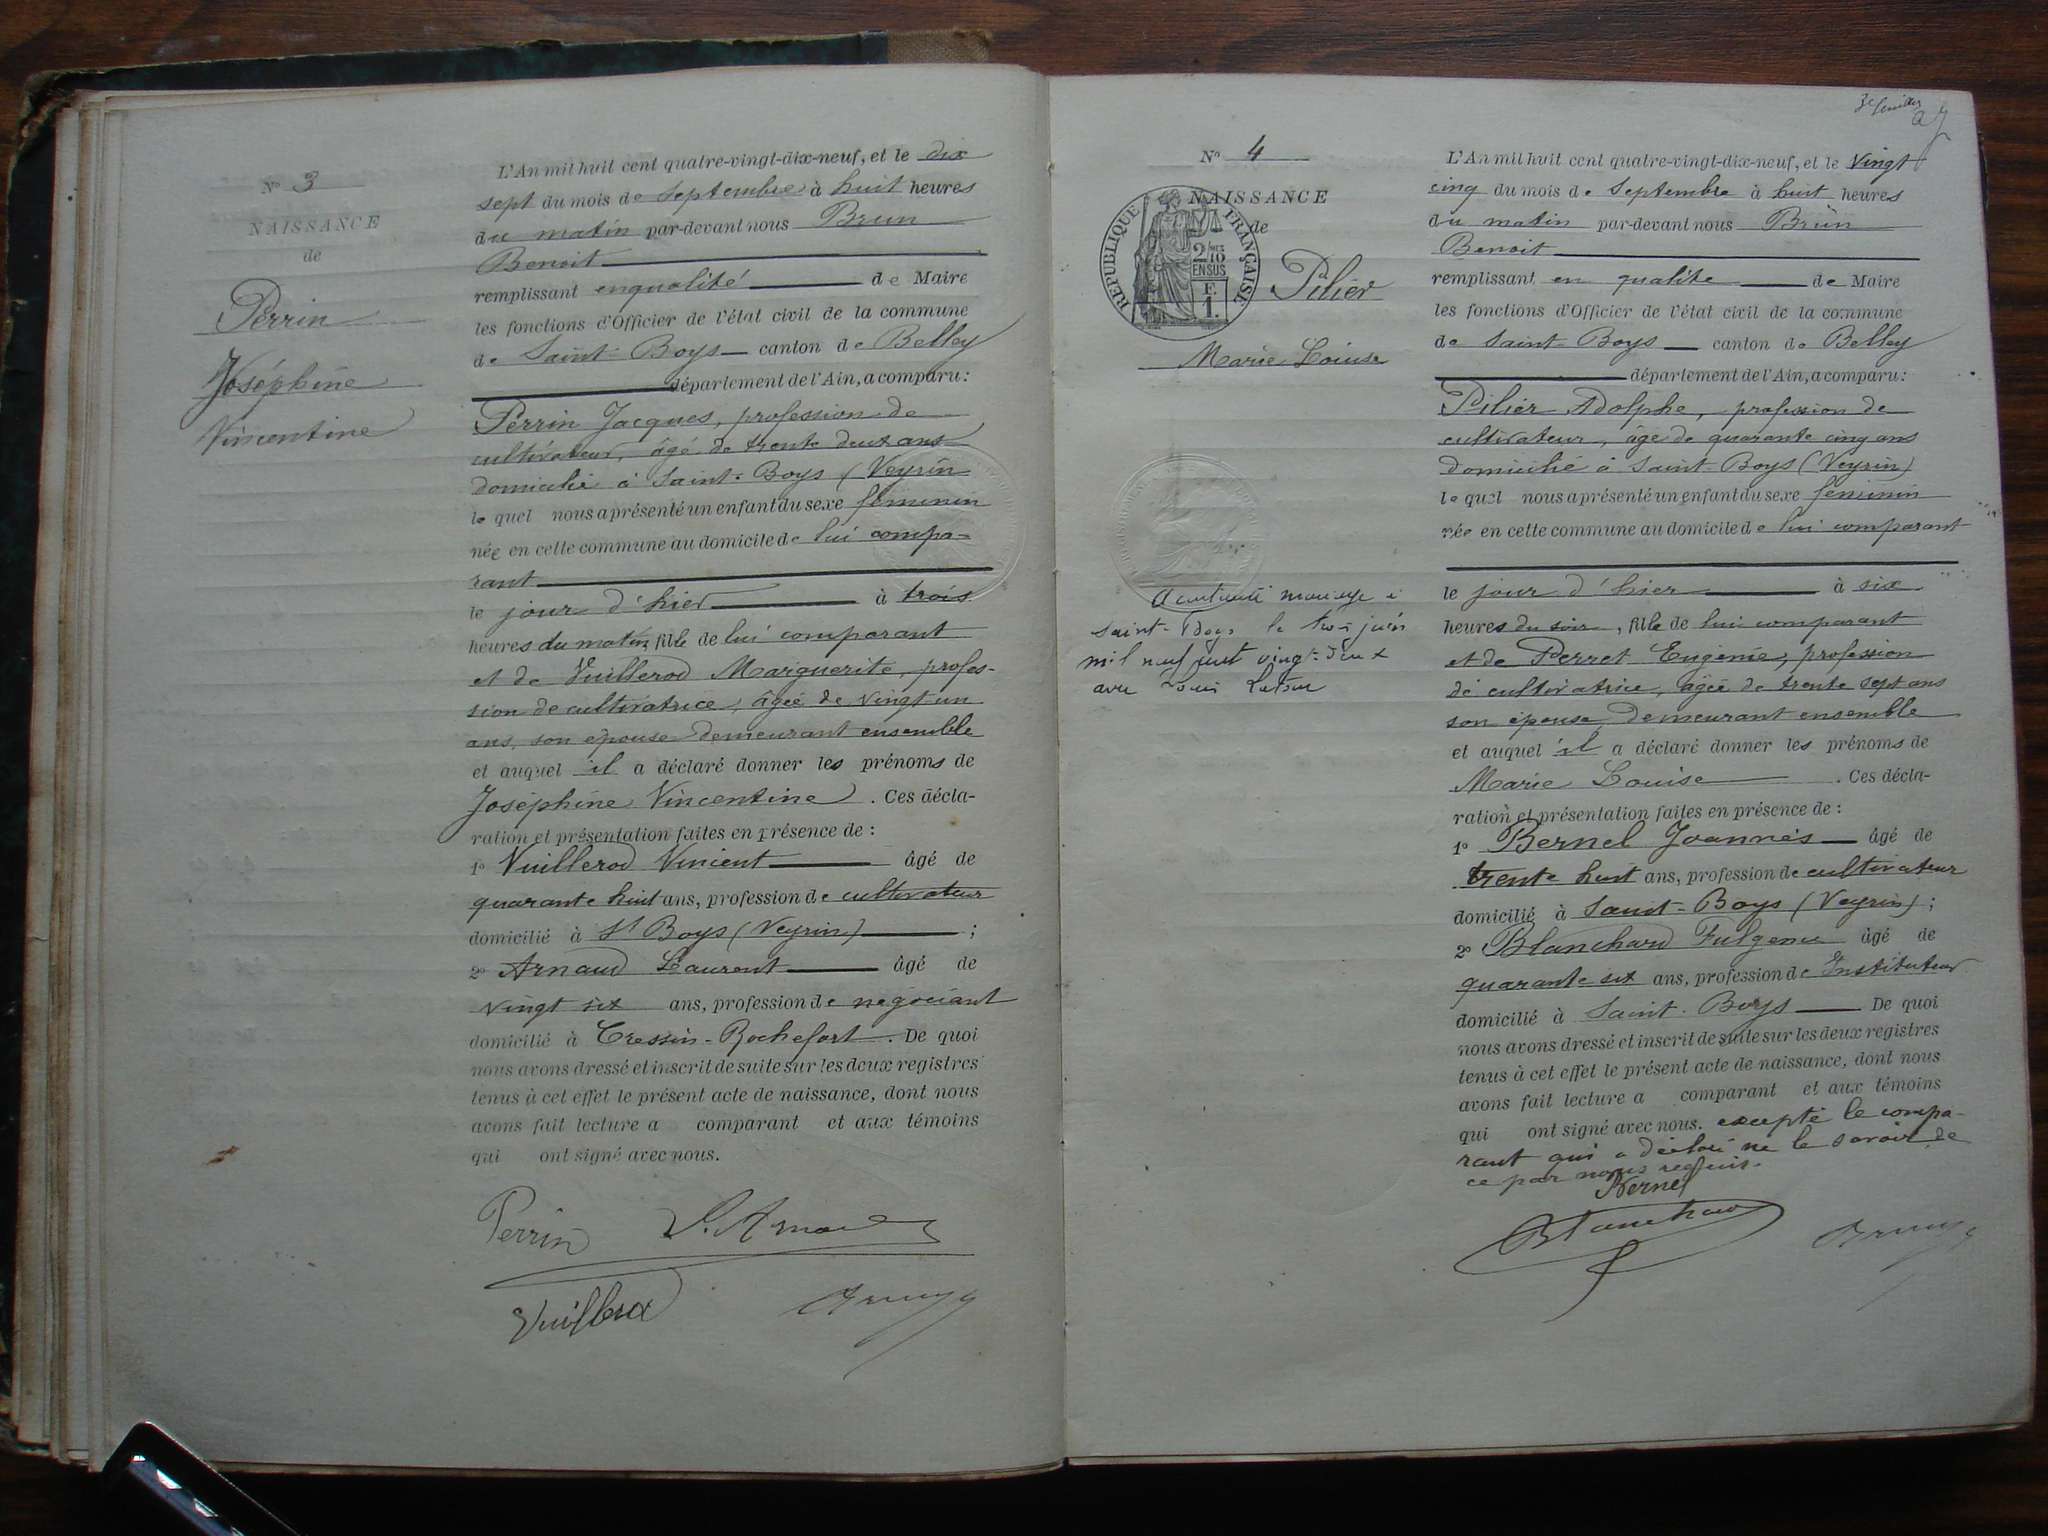 N° 3
NAISSANCE
de
Perrin
Joséphine
Vincentine
L'An mil huit cent quatre-vingt-dix-neuf, et le dix
sept du mois de Septembre à huit heures
du matin par-devant nous Brun
Benoit
remplissant en qualité de Maire
les fonctions d'Officier de l'état civil de la commune
de Saint-Boys canton de Belley
département de l'Ain, a comparu:
Perrin Jacques, profession de
cultivateur, âgé de trente deux ans
domicilié à Saint-Boys (Veyrin
le quel nous a présenté un enfant du sexe féminin
née en cette commune au domicile de lui compa-
rant
le jour d'hier à trois
heures du matin, fille de lui comparant
et de Vuillerod Marguerite, profes-
sion de cultivatrice, âgée de vingt un
ans, son épouse demeurant ensemble
et auquel il a déclaré donner les prénoms de
Joséphine Vincentine. Ces décla-
ration et présentation faites en présence de :
1° Vuillerod Vincent âgé de
quarante huit ans, profession de cultivateur
domicilié à St Boys (Veyrin) ;
2° Arnaud Laurent âgé de
vingt six ans, profession de négociant
domicilié à Cressin-Rochefort. De quoi
nous avons dressé et inscrit de suite sur les deux registres
tenus à cet effet le présent acte de naissance, dont nous
avons fait lecture a comparant et aux témoins
qui ont signé avec nous.
Perrin L. Arnaud
Vuillerod
3e feuillet
N° 4
NAISSANCE
de
RÉPUBLIQUE FRANÇAISE
2/10 EN SUS
F. 1.
Pilier
Marie Louise
A contracté mariage à
Saint-Boys le trois juin
mil neuf cent vingt-deux
avec Louis
L'An mil huit cent quatre-vingt-dix-neuf, et le Vingt
cinq du mois de Septembre à huit heures
du matin par-devant nous Brun
Benoit
remplissant en qualité de Maire
les fonctions d'Officier de l'état civil de la commune
de Saint-Boys canton de Belley
département de l'Ain, a comparu:
Pilier Adolphe, profession de
cultivateur, âgé de quarante cinq ans
domicilié à Saint-Boys (Veyrin)
le quel nous a présenté un enfant du sexe féminin
née en cette commune au domicile de lui comparant
le jour d'hier à six
heures du soir, fille de lui comparant
et de Perret Eugénie, profession
de cultivatrice, âgée de trente sept ans
son épouse, demeurant ensemble
et auquel il a déclaré donner les prénoms de
Marie Louise. Ces décla-
ration et présentation faites en présence de :
1° Bernel Joannès âgé de
trente huit ans, profession de cultivateur
domicilié à Saint-Boys (Veyrin) ;
2° Blanchard Fulgence âgé de
quarante six ans, profession de Instituteur
domicilié à Saint-Boys De quoi
nous avons dressé et inscrit de suite sur les deux registres
tenus à cet effet le présent acte de naissance, dont nous
avons fait lecture a comparant et aux témoins
qui ont signé avec nous. excepté le compa-
rant qui a déclaré ne le savoir de
ce par nous requis.
Bernel
Blanchard